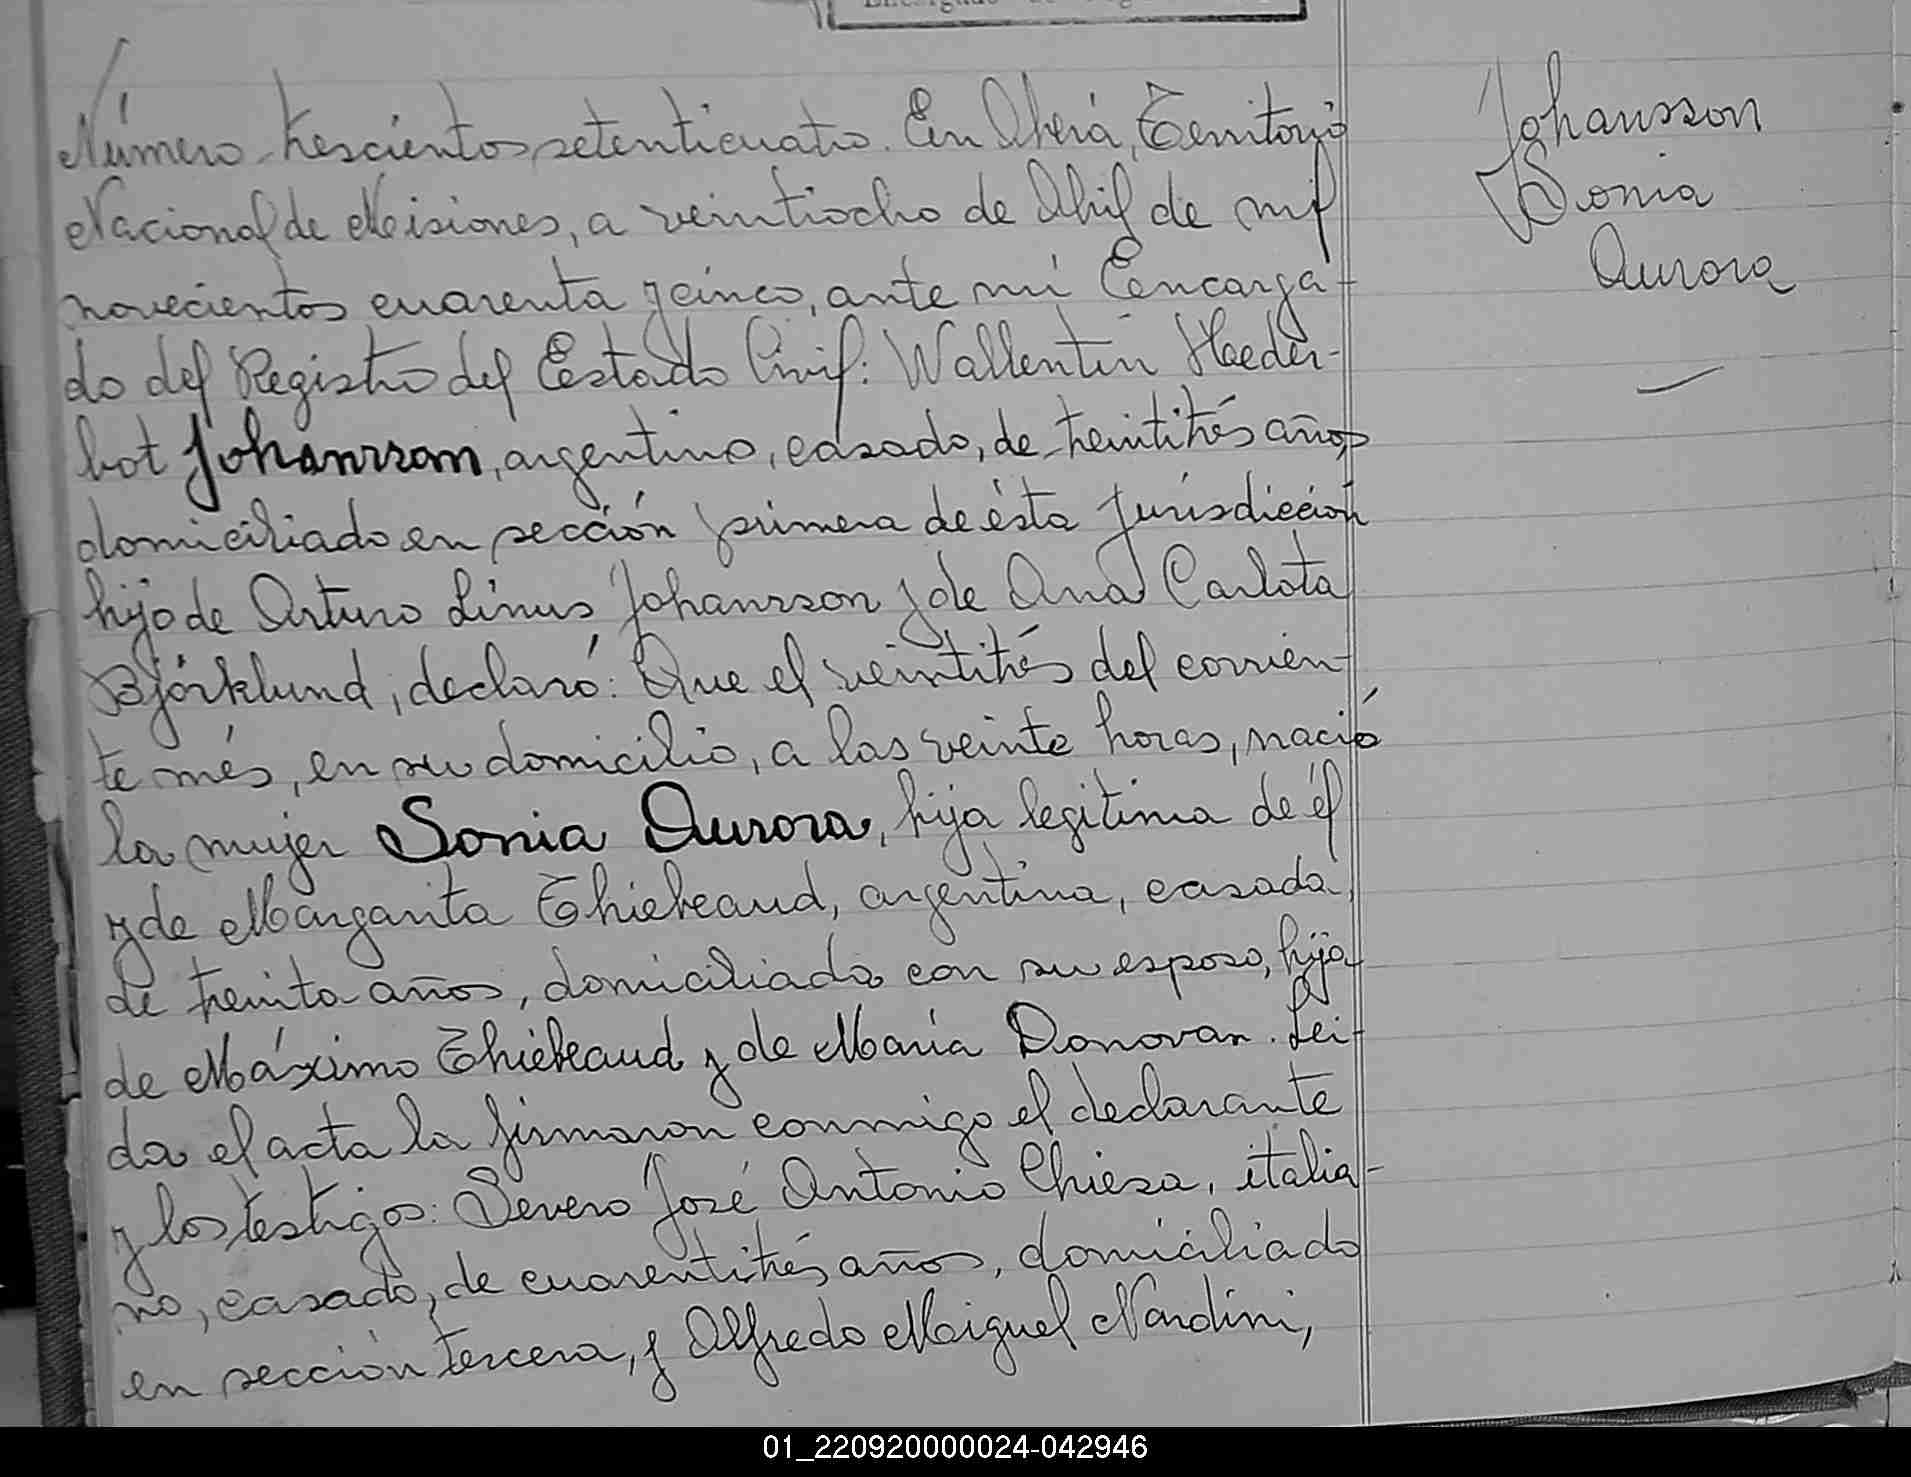 Número trescientos setenticuatro. En Oberá, Territorio
Nacional de Misiones, a veintiocho de Abril de mil
novecientos cuarenta y cinco, ante mi Encarga-
do del Registro del Estado Civil: Wallentin Heeder-
bot Johansson, argentino, casado, de treintitrés años,
domiciliado en sección primera de ésta jurisdicción
hijo de Arturo Linus Johansson y de Ana Carlota
Bjórklund, declaró: Que el veintitrés del corrien-
te més, en su domicilio, a las veinte horas, nació
la mujer Sonia Aurora, hija legitima de él
y de Margarita Thiebeaud, argentina, casada,
de treinta años, domiciliada con su esposo, hija
de Máximo Thiebeaud y de María Donovan. Lei-
da el acta la firmaron conmigo el declarante
y los testigos: Severo José Antonio Chiesa, italia-
no, casado, de cuarentitrés años, domiciliado
en sección tercera, y Alfredo Miguel Nardini,
Johansson
Sonia
Aurora
01_220920000024-042946